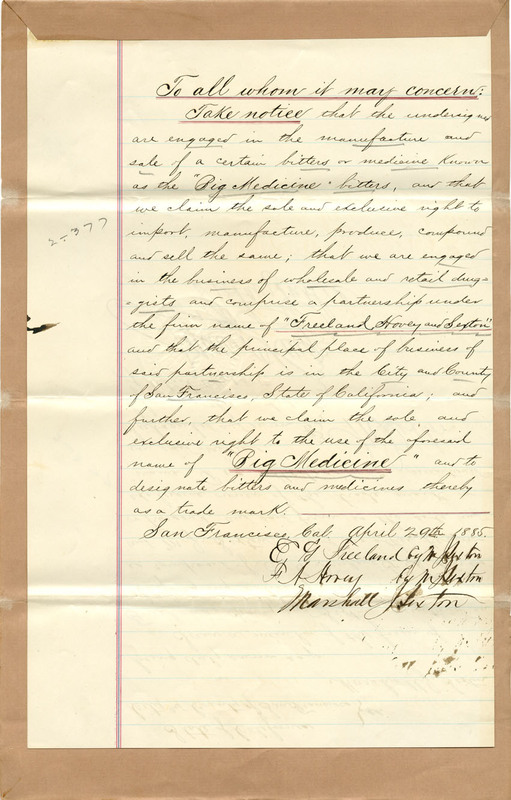 To all whom it may concern:
Take notice that the undersigned
are engaged in the manufacture and
sale of a certain bitters or medicine known
as the "Pig Medicine" bitters, and that
we claim the sole and exclusive right to
import, manufacture, produce, compound
and sell the same; that we are engaged
in the business of wholesale and retail drug-
-gists and comprise a partnership under
the firm name of "Freeland Hovey and Sexton"
2-377
and that the principal place of business of
said partnership is in the City and County
of San Francisco, State of California; and
further, that we claim the sole and
exclusive right to the use of the aforesaid
name of "Pig Medicine" and to
designate bitters and medicines thereby
as a trade mark.
San Francisco, Cal. April 29th 1885.
E G Freeland by M Sexton
F A Hovey by M Sexton
Marshall J Sexton